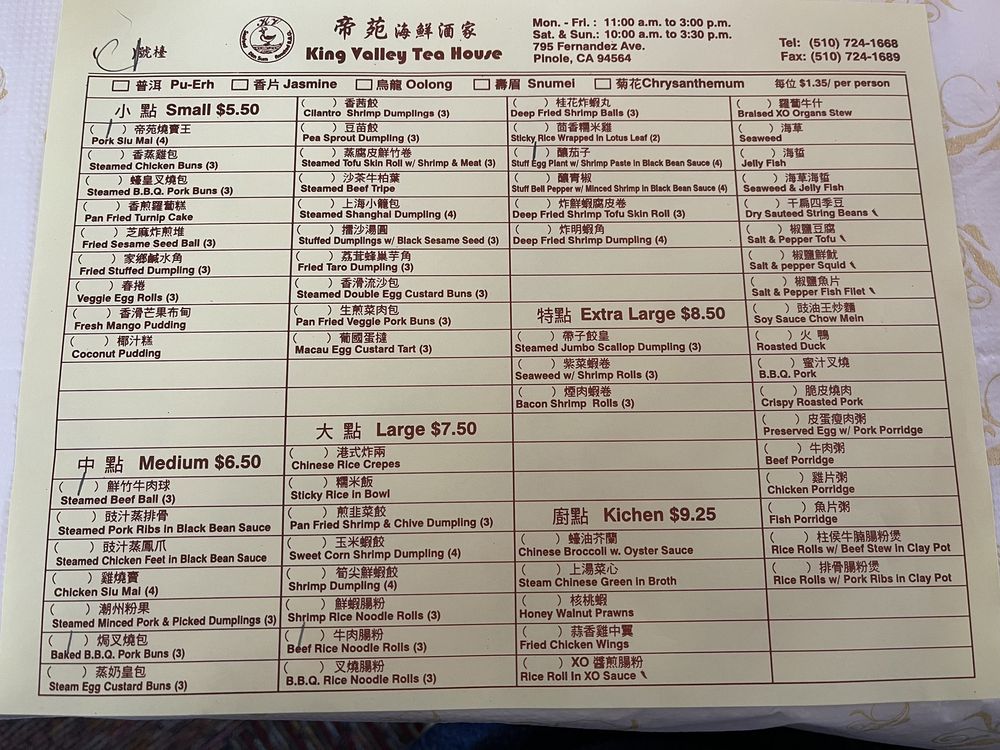 號檯
帝苑海鮮酒家
King Valley Tea House
Mon. - Fri. : 11:00 a.m. to 3:00 p.m.
Sat. & Sun.: 10:00 a.m. to 3:30 p.m.
795 Fernandez Ave.
Pinole, CA 94564
Tel: (510) 724-1668
Fax: (510) 724-1689
普洱 Pu-Erh 香片 Jasmine 烏龍 Oolong 壽眉 Snumei 菊花Chrysanthemum 每位 $1.35/ per person
小 點 Small $5.50
( / ) 帝苑燒賣王
Pork Siu Mai (4)
( ) 香蒸雞包
Steamed Chicken Buns (3)
( ) 蠔皇叉燒包
Steamed B.B.Q. Pork Buns (3)
( ) 香煎蘿蔔糕
Pan Fried Turnip Cake
( ) 芝麻炸煎堆
Fried Sesame Seed Ball (3)
( ) 家鄉鹹水角
Fried Stuffed Dumpling (3)
( ) 春捲
Veggie Egg Rolls (3)
( ) 香滑芒果布甸
Fresh Mango Pudding
( ) 椰汁糕
Coconut Pudding
中 點 Medium $6.50
( / ) 鮮竹牛肉球
Steamed Beef Ball (3)
( ) 豉汁蒸排骨
Steamed Pork Ribs in Black Bean Sauce
( ) 豉汁蒸鳳爪
Steamed Chicken Feet in Black Bean Sauce
( ) 雞燒賣
Chicken Siu Mai (4)
( ) 潮州粉果
Steamed Minced Pork & Picked Dumplings (3)
( / ) 焗叉燒包
Baked B.B.Q. Pork Buns (3)
( ) 蒸奶皇包
Steam Egg Custard Buns (3)
( ) 香茜餃
Cilantro Shrimp Dumplings (3)
( ) 豆苗餃
Pea Sprout Dumpling (3)
( ) 蒸腐皮鮮竹卷
Steamed Tofu Skin Roll w/ Shrimp & Meat (3)
( ) 沙茶牛柏葉
Steamed Beef Tripe
( ) 上海小籠包
Steamed Shanghai Dumpling (4)
( ) 擂沙湯圓
Stuffed Dumplings w/ Black Sesame Seed (3)
( ) 荔茸蜂巢芋角
Fried Taro Dumpling (3)
( ) 香滑流沙包
Steamed Double Egg Custard Buns (3)
( ) 生煎菜肉包
Pan Fried Veggie Pork Buns (3)
( ) 葡國蛋撻
Macau Egg Custard Tart (3)
大 點 Large $7.50
( ) 港式炸兩
Chinese Rice Crepes
( ) 糯米飯
Sticky Rice in Bowl
( ) 煎韭菜餃
Pan Fried Shrimp & Chive Dumpling (3)
( ) 玉米蝦餃
Sweet Corn Shrimp Dumpling (4)
( ) 筍尖鮮蝦餃
Shrimp Dumpling (4)
( ) 鮮蝦腸粉
Shrimp Rice Noodle Rolls (3)
( / ) 牛肉腸粉
Beef Rice Noodle Rolls (3)
( ) 叉燒腸粉
B.B.Q. Rice Noodle Rolls (3)
( ) 桂花炸蝦丸
Deep Fried Shrimp Balls (3)
( ) 茴香糯米雞
Sticky Rice Wrapped in Lotus Leaf (2)
( / ) 釀茄子
Stuff Egg Plant w/ Shrimp Paste in Black Bean Sauce (4)
( ) 釀青椒
Stuff Bell Pepper w/ Minced Shrimp in Black Bean Sauce (4)
( ) 炸鮮蝦腐皮卷
Deep Fried Shrimp Tofu Skin Roll (3)
( ) 炸明蝦角
Deep Fried Shrimp Dumpling (4)
特點 Extra Large $8.50
( ) 帶子餃皇
Steamed Jumbo Scallop Dumpling (3)
( ) 紫菜蝦卷
Seaweed w/ Shrimp Rolls (3)
( ) 煙肉蝦卷
Bacon Shrimp Rolls (3)
廚點 Kichen $9.25
( ) 蠔油芥蘭
Chinese Broccoli w. Oyster Sauce
( ) 上湯菜心
Steam Chinese Green in Broth
( ) 核桃蝦
Honey Walnut Prawns
( ) 蒜香雞中翼
Fried Chicken Wings
( ) XO 醬煎腸粉
Rice Roll In XO Sauce
( ) 蘿蔔牛什
Braised XO Organs Stew
( ) 海草
Seaweed
( ) 海蜇
Jelly Fish
( ) 海草海蜇
Seaweed & Jelly Fish
( ) 干扁四季豆
Dry Sauteed String Beans
( ) 椒鹽豆腐
Salt & Pepper Tofu
( ) 椒鹽鮮魷
Salt & pepper Squid
( ) 椒鹽魚片
Salt & Pepper Fish Filet
( ) 豉油王炒麵
Soy Sauce Chow Mein
( ) 火 鴨
Roasted Duck
( ) 蜜汁叉燒
B.B.Q. Pork
( ) 脆皮燒肉
Crispy Roasted Pork
( ) 皮蛋瘦肉粥
Preserved Egg w/ Pork Porridge
( ) 牛肉粥
Beef Porridge
( ) 雞片粥
Chicken Porridge
( ) 魚片粥
Fish Porridge
( ) 柱侯牛腩腸粉煲
Rice Rolls w/ Beef Stew in Clay Pot
( ) 排骨腸粉煲
Rice Rolls w/ Pork Ribs in Clay Pot